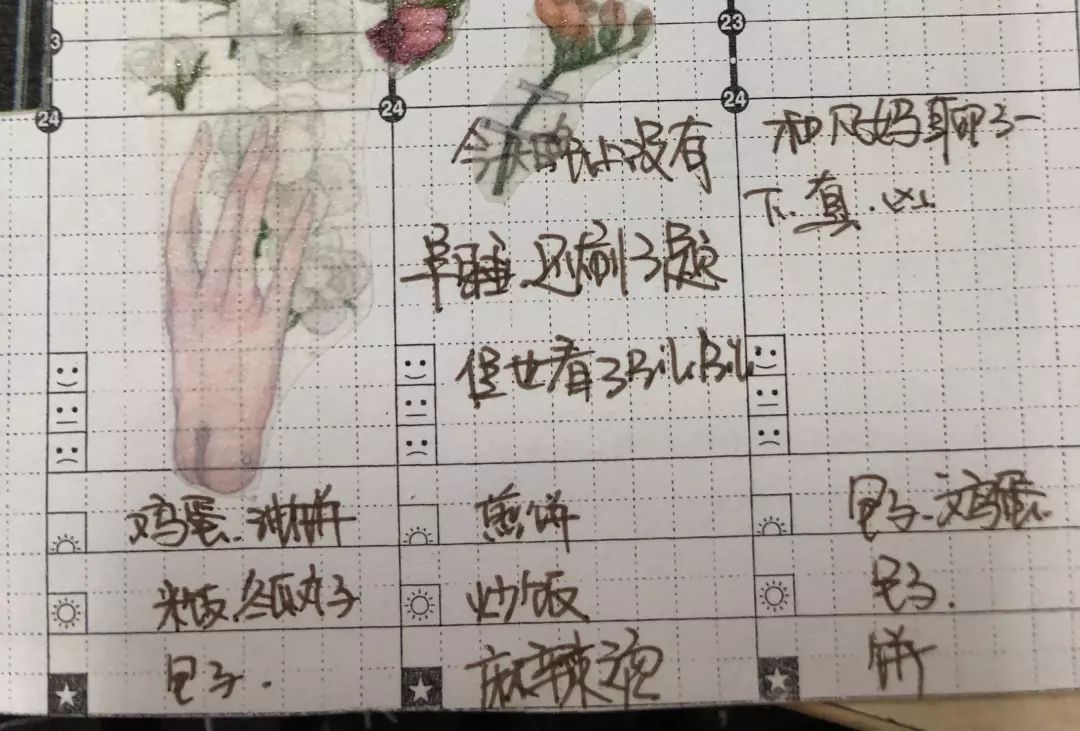 3
24
鸡蛋.油饼
米饭.冬瓜丸子
包子.
24
今天晚上没有
早睡.还刷了题
看了BiliBili
煎饼
炒饭
麻辣烫
23
24
和妈聊了一
下.真.
包子.鸡蛋.
包子.
饼